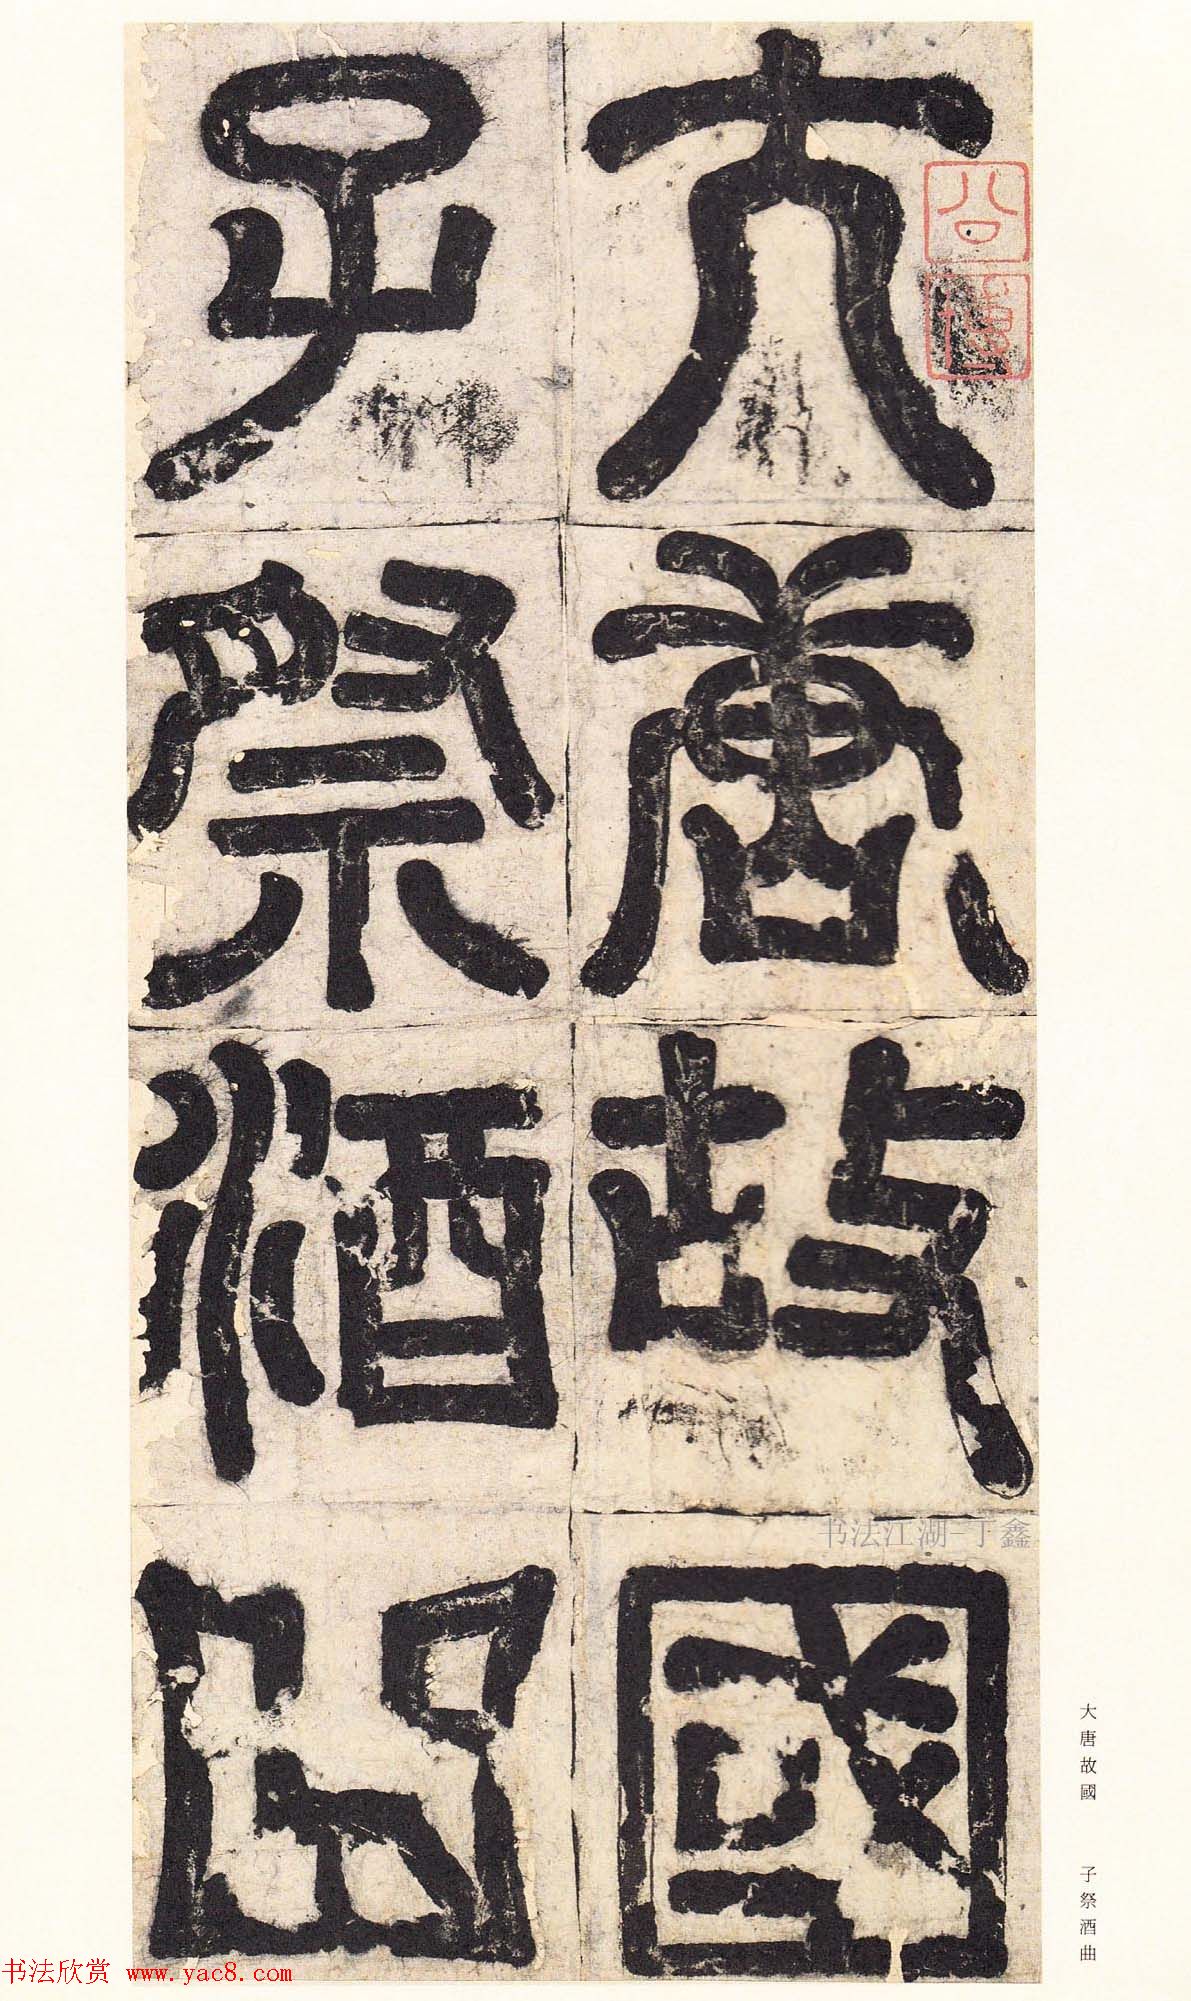 大唐故國
子祭酒曲
大唐故國 子祭酒曲
书法江湖-丁鑫
书法欣赏 www.yac8.com